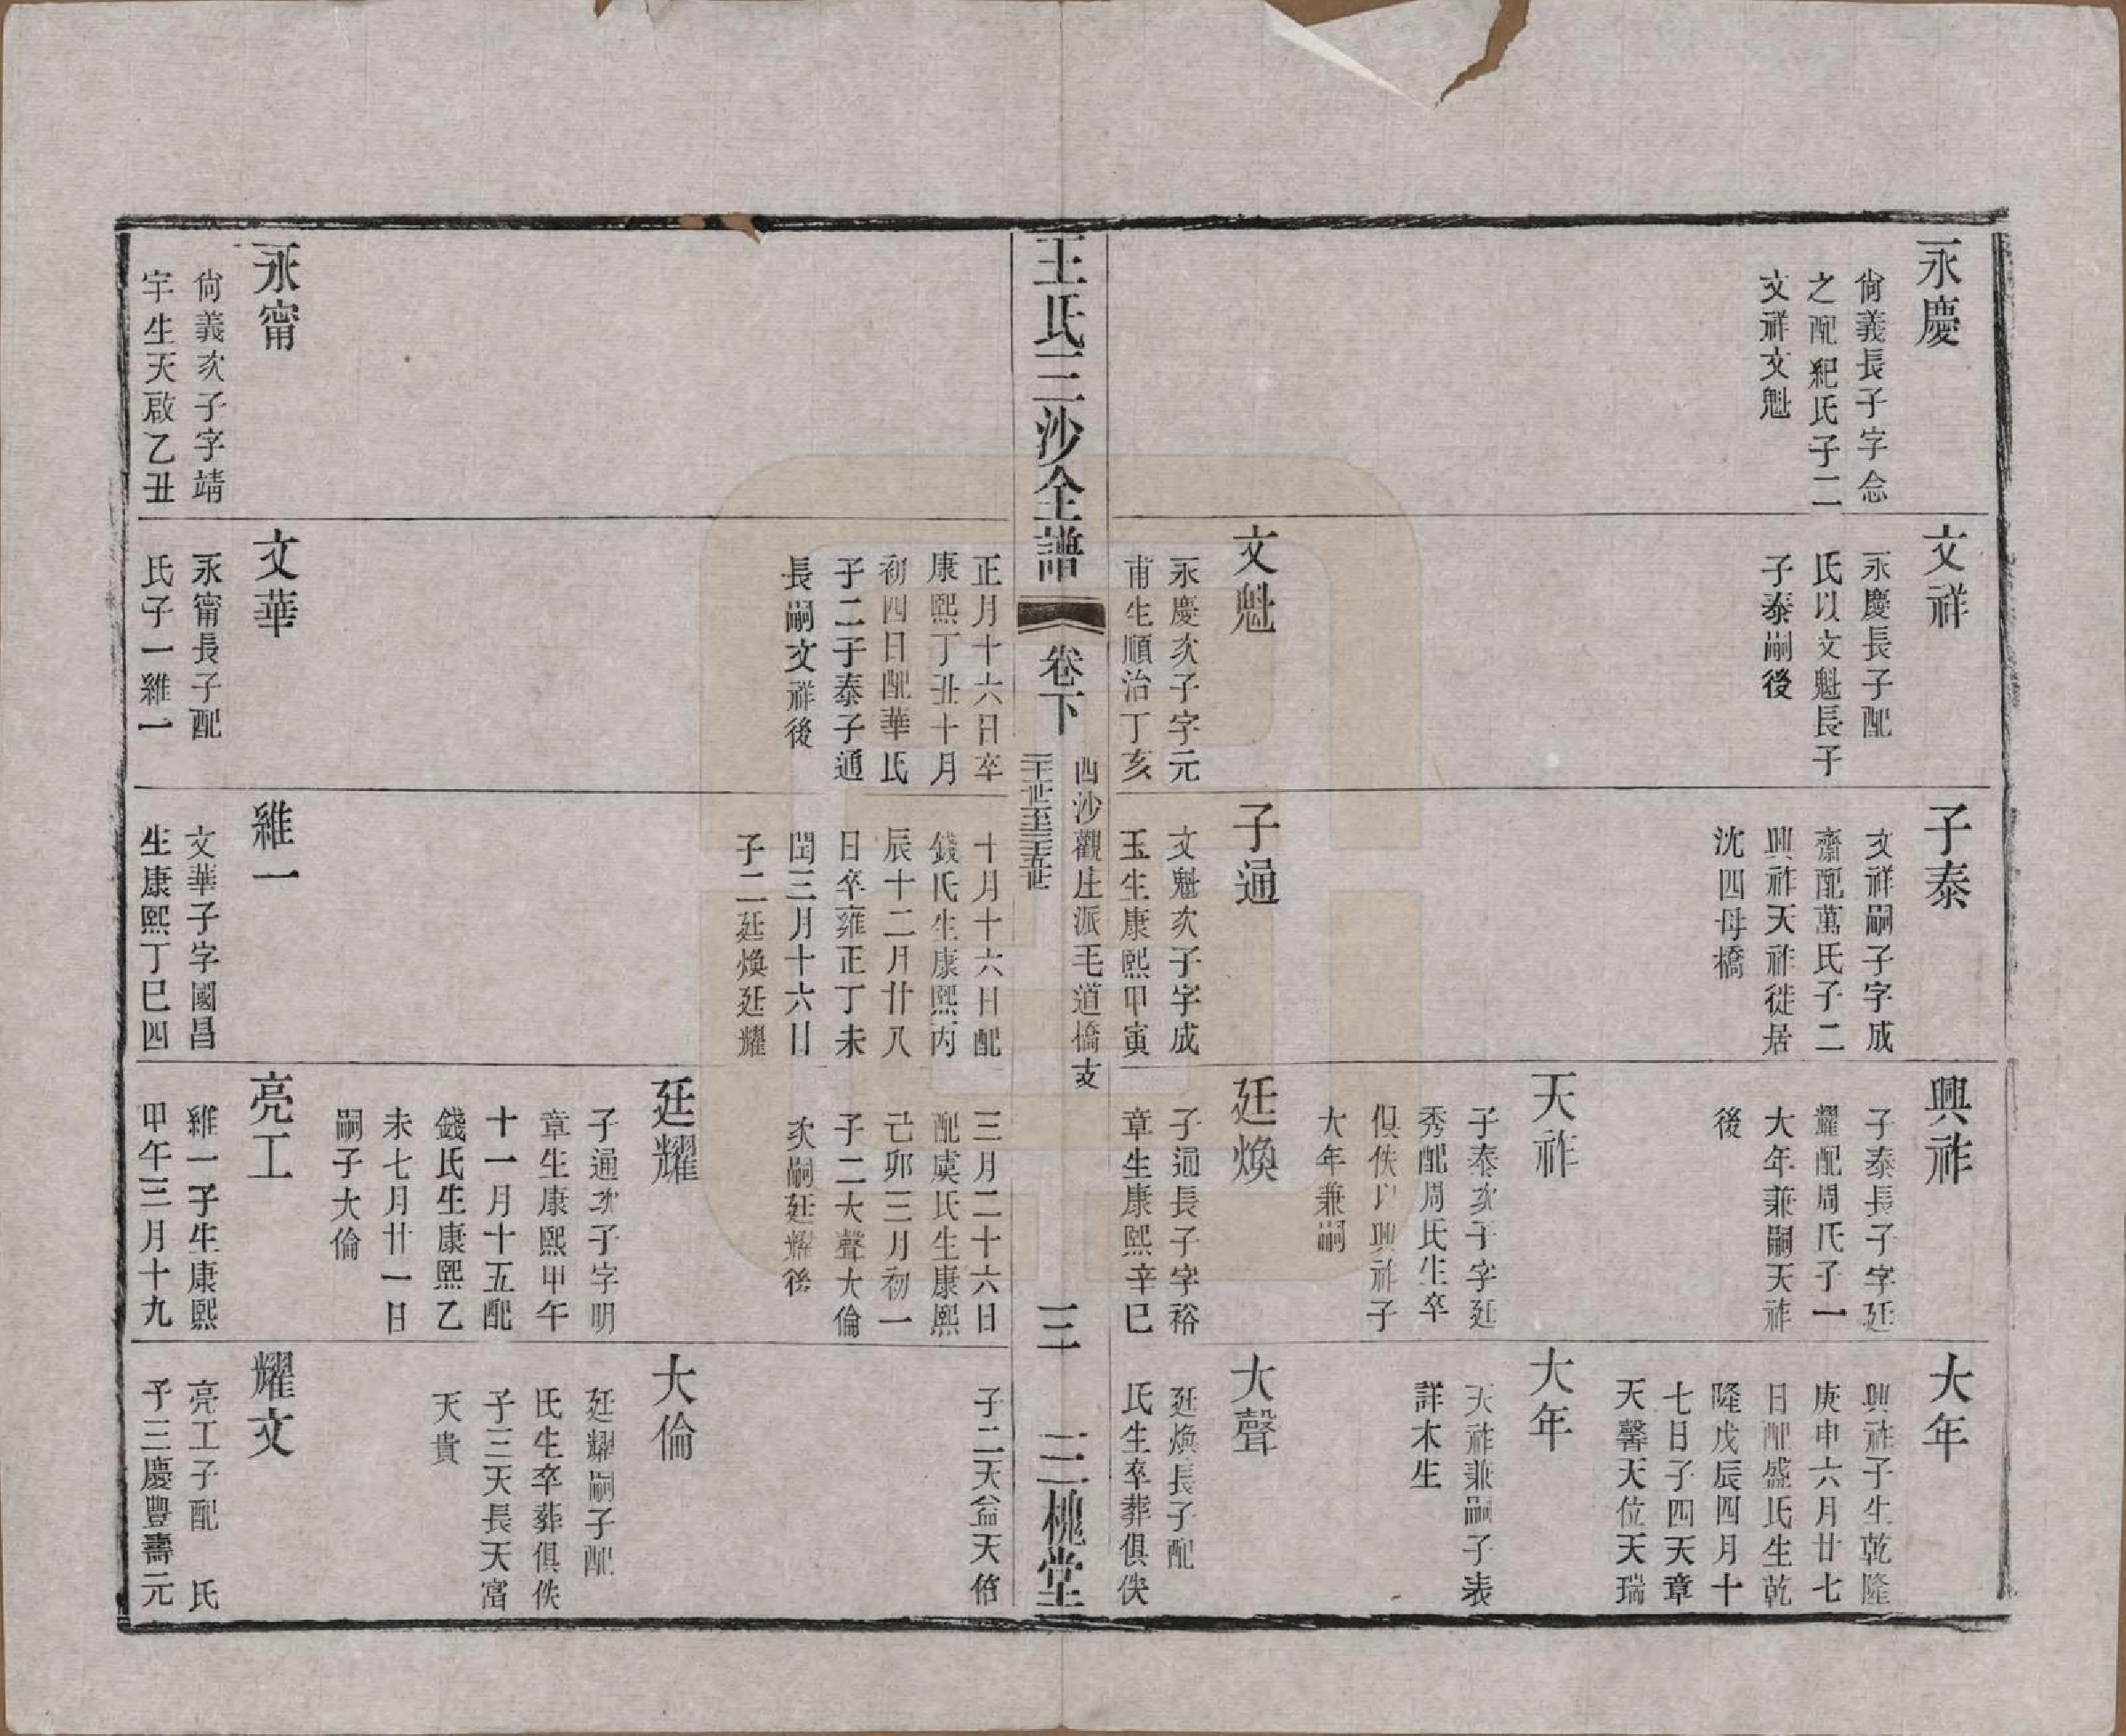 永慶
尙義長子字念
之配紀氏子二
文祥文魁
文祥
永慶長子配
氏以文魁長子
子泰嗣後
文魁
永慶次子字元
甫生順治丁亥
子泰
文祥嗣子字成
齋配萬氏子二
興祚天祚徙居
沈四母橋
子通
文魁次子字成
玉生康熙甲寅
興祚
子泰長子字廷
耀配周氏子一
大年兼嗣天祚
後
天祚
子泰次子字廷
秀配周氏生卒
俱佚以興祚子
大年兼嗣
廷煥
子通長子字裕
章生康熙辛巳
大年
興祚子生乾隆
庚申六月廿七
日配盛氏生乾
隆戊辰四月十
七日子四天章
天馨天位天瑞
大年
天祚兼嗣子表
詳木生
大聲
廷煥長子配
氏生卒葬俱佚
王氏三沙全譜
卷下
西沙觀庄派毛道橋支
三十一世至三十五世
三
三槐堂
正月十六日卒
康熙丁丑十月
初四日配華氏
子二子泰子通
長嗣文祥後
十月十六日配
錢氏生康熙丙
辰十二月廿八
日卒雍正丁未
閏三月十六日
子二廷煥廷耀
三月二十六日
配虞氏生康熙
己卯三月初一
子二大聲大倫
次嗣廷耀後
廷耀
子通次子字明
章生康熙甲午
十一月十五配
錢氏生康熙乙
未七月廿一日
嗣子大倫
子二天益天佑
大倫
廷耀嗣子配
氏生卒葬俱佚
子三天長天富
天貴
永甯
尙義次子字靖
宇生天啟乙丑
文華
永甯長子配
氏子一維一
維一
文華子字國昌
生康熙丁巳四
亮工
維一子生康熙
甲午三月十九
耀文
亮工子配　氏
子三慶豐壽元